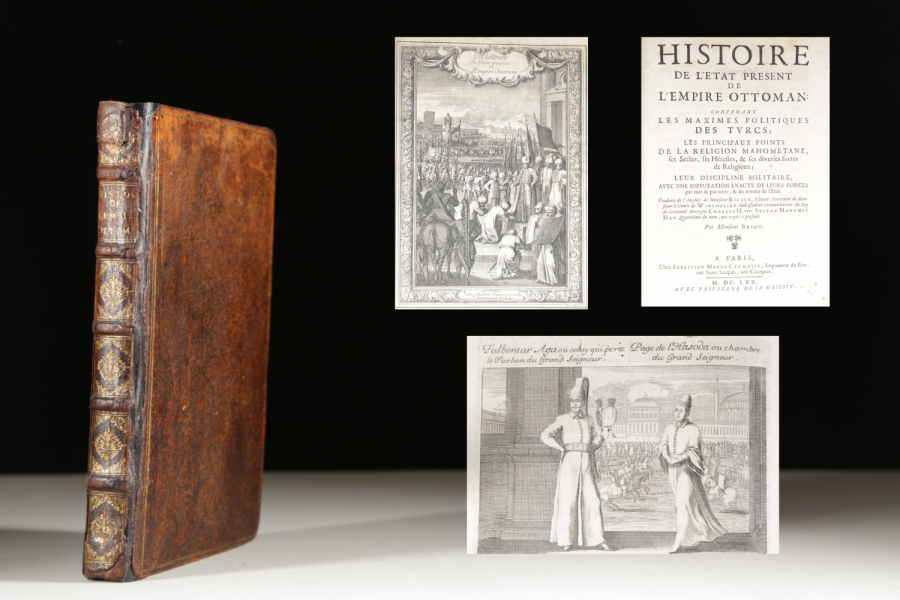 HISTOI
DE
L'EMPI
OTTOM
Histoire
de l'Etat present
de
l'Empire Ottoman
HISTOIRE
DE L'ETAT PRESENT
DE
L'EMPIRE OTTOMAN:
CONTENANT
LES MAXIMES POLITIQUES
DES TVRCS;
LES PRINCIPAUX POINTS
DE LA RELIGION MAHOMETANE,
ses Sectes, ses Héresies, & ses diverses sortes
de Religieux;
LEUR DISCIPLINE MILITAIRE,
AVEC UNE SUPPUTATION EXACTE DE LEURS FORCES
par mer & par terre, & du revenu de l'Estat.
Traduite de l'Anglois de Monsieur RICAUT, Escuyer, Secretaire de Mon-
sieur le Comte de WINCHELSEY Ambassadeur extraordinaire du Roy
de la Grand' Bretagne CHARLES II. vers SULTAN MAHOMET
HAN, Quatriéme du nom, qui regne à present.
Par Monsieur BRIOT.
A PARIS,
Chez SEBASTIEN MABRE-CRAMOISY, Imprimeur du Roy,
ruë Saint Jacques, aux Cicognes.
M. DC. LXX.
AVEC PRIVILEGE DE SA MAIESTÉ.
Tulbentar Aga ou celuy qui porte
le Turban du Grand Seigneur.
Page de l'Hasoda ou chambre
du Grand Seigneur.